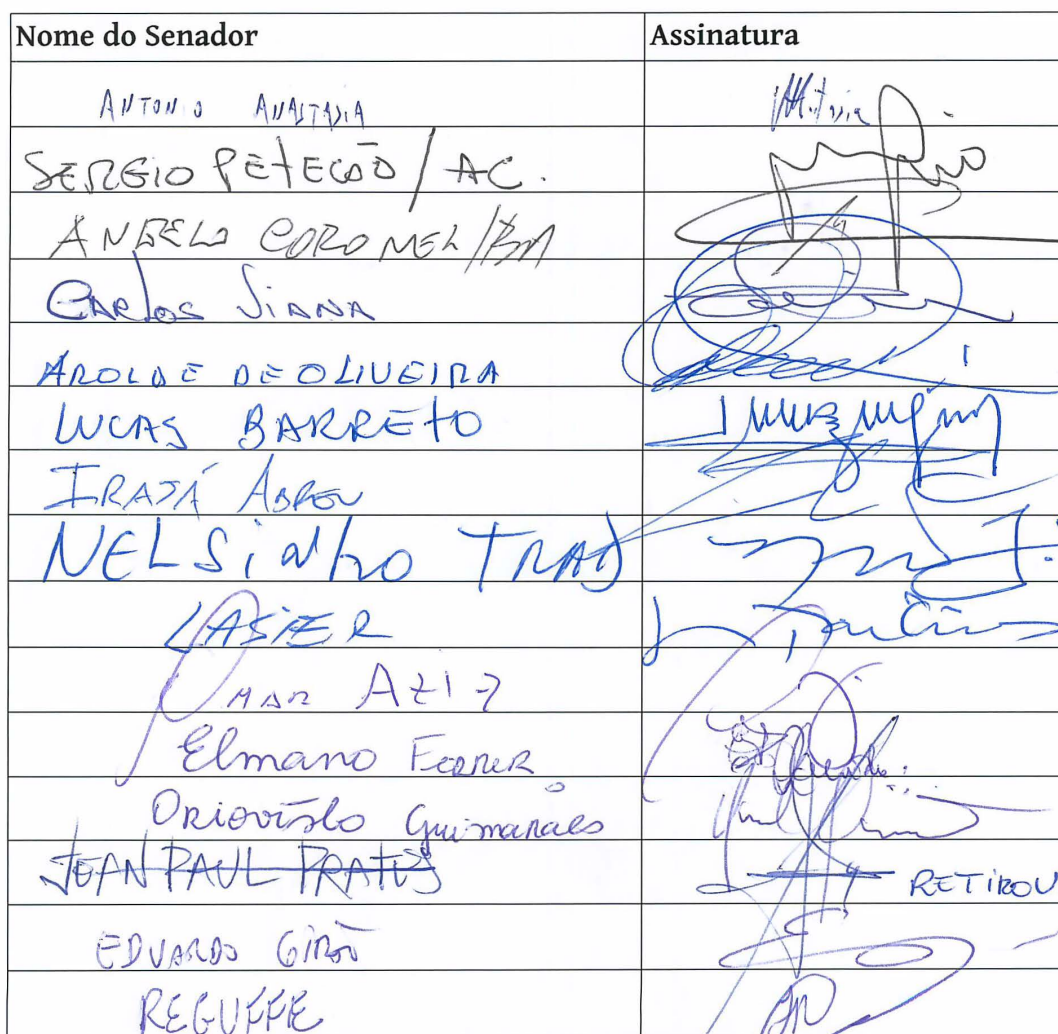 Nome do Senador Assinatura
ANTONIO ANASTASIA
SERGIO PETECÃO / AC.
ANGELO CORONEL/BA
CARLOS VIANA
AROLDE DE OLIVEIRA
LUCAS BARRETO
IRAJÁ ABREU
NELSINHO TRAD
LASIER
OMAR AZIZ
Elmano FERRER
ORIOVISTO Guimarães
JEAN PAUL PRATES RETIROU
EDUARDO GIRÃO
REGUFFE